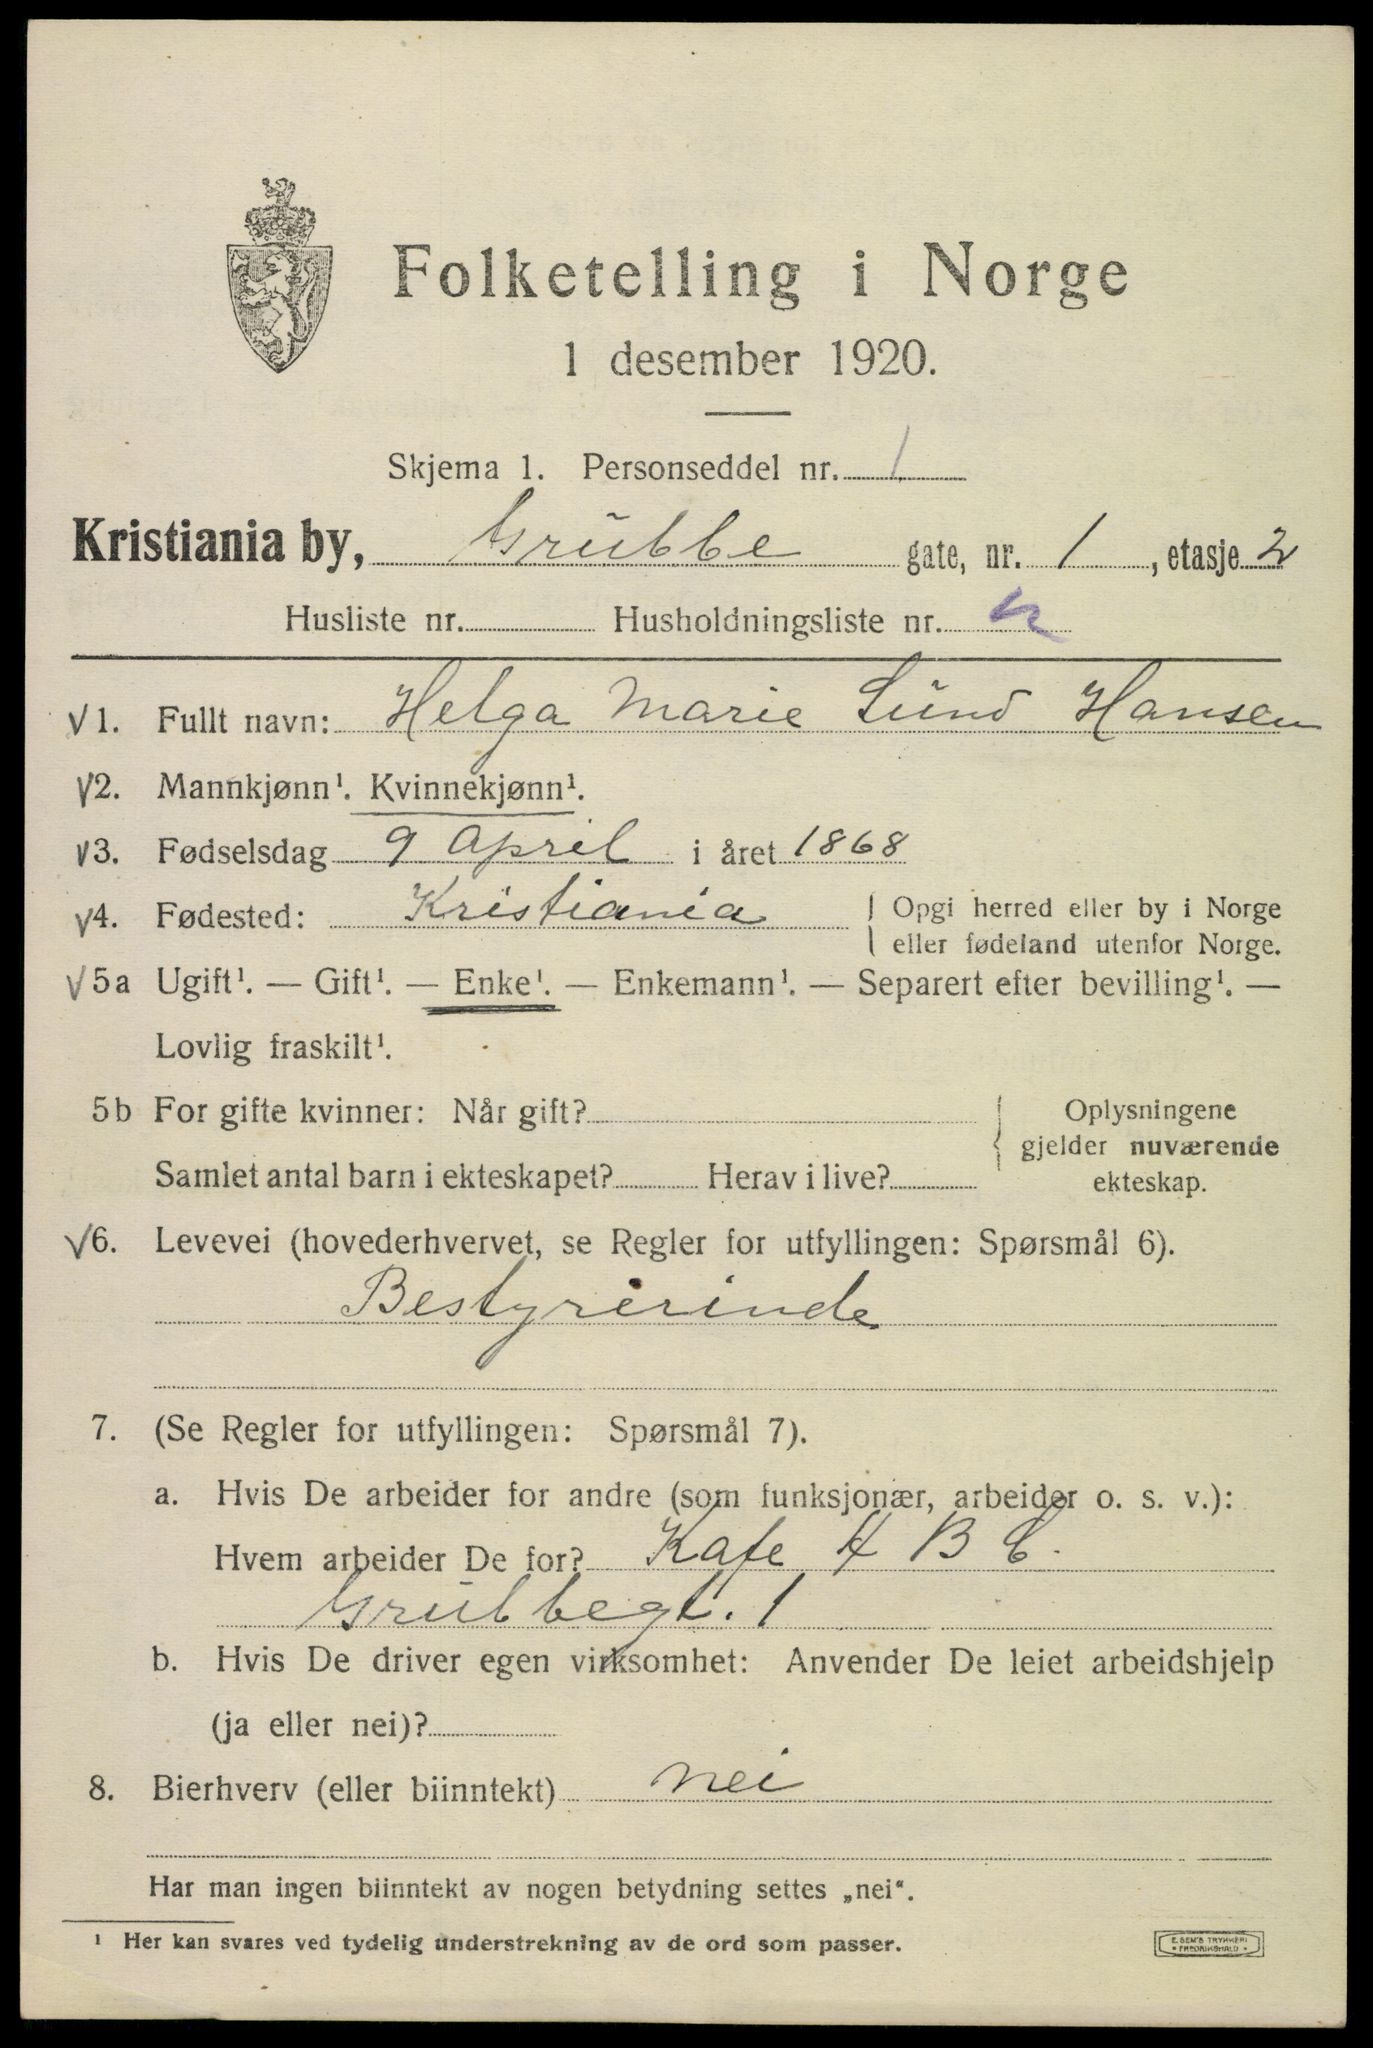 Folketelling i Norge
1 desember 1920.
Skjema 1. Personseddel nr. 1
Kristiania by, Grubbe gate, nr. 1, etasje 2
Husliste nr. Husholdningsliste nr.
√1. Fullt navn: Helga Marie Lund Hansen
√2. Mannkjønn¹. Kvinnekjønn¹.
√3. Fødselsdag 9 April i året 1868
√4. Fødested: Kristiania { Opgi herred eller by i Norge
eller fødeland utenfor Norge.
√5a Ugift¹. — Gift¹. — Enke¹. — Enkemann¹. — Separert efter bevilling¹. —
Lovlig fraskilt¹.
5b For gifte kvinner: Når gift? { Oplysningene
gjelder nuværende
Samlet antal barn i ekteskapet? Herav i live? ekteskap.
√6. Levevei (hovederhvervet, se Regler for utfyllingen: Spørsmål 6).
Bestyrerinde
7. (Se Regler for utfyllingen: Spørsmål 7).
a. Hvis De arbeider for andre (som funksjonær, arbeider o. s. v.):
Hvem arbeider De for? Kafe A B C.
Grubbegt. 1
b. Hvis De driver egen virksomhet: Anvender De leiet arbeidshjelp
(ja eller nei)?
8. Bierhverv (eller biinntekt) nei
Har man ingen biinntekt av nogen betydning settes „nei“.
¹ Her kan svares ved tydelig understrekning av de ord som passer.
E. SEM'S TRYKKERI
• FREDRIKSHALD •